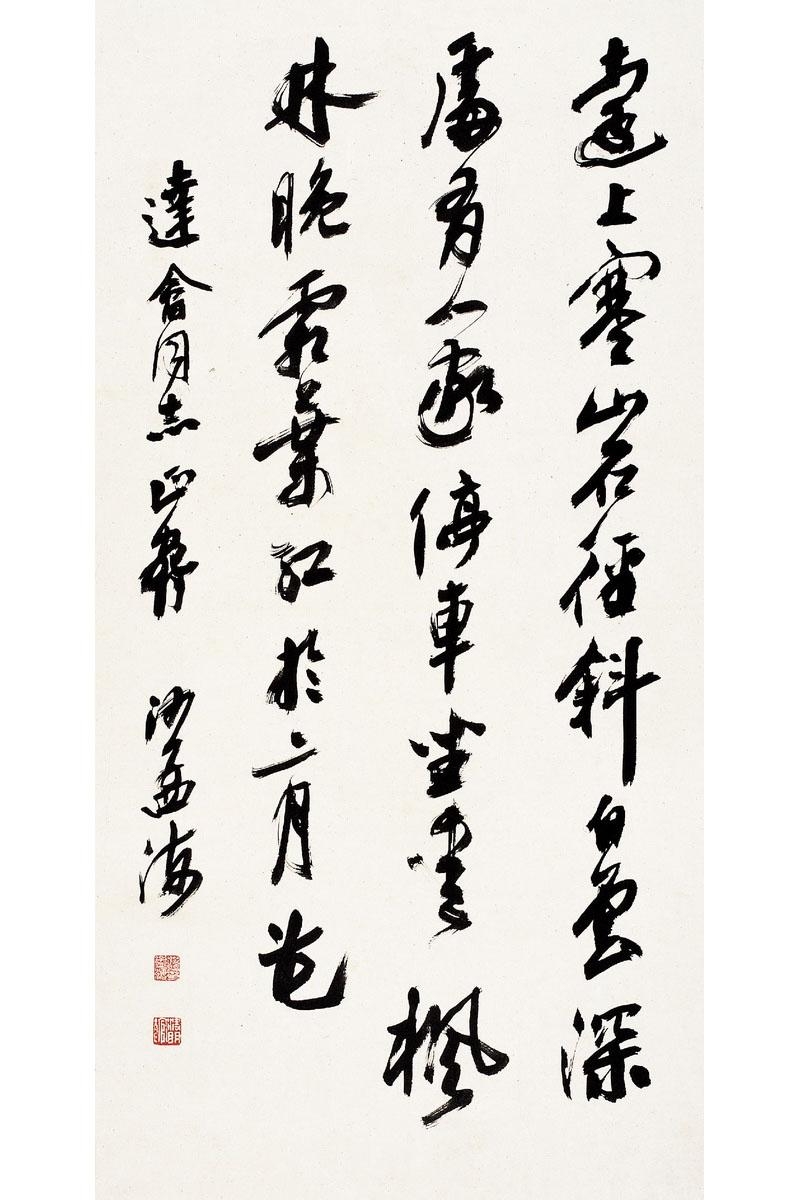 遠上寒山石徑斜白雲深
處有人家停車坐愛楓
林晚霜葉紅於二月花
達會同志正 沙孟海